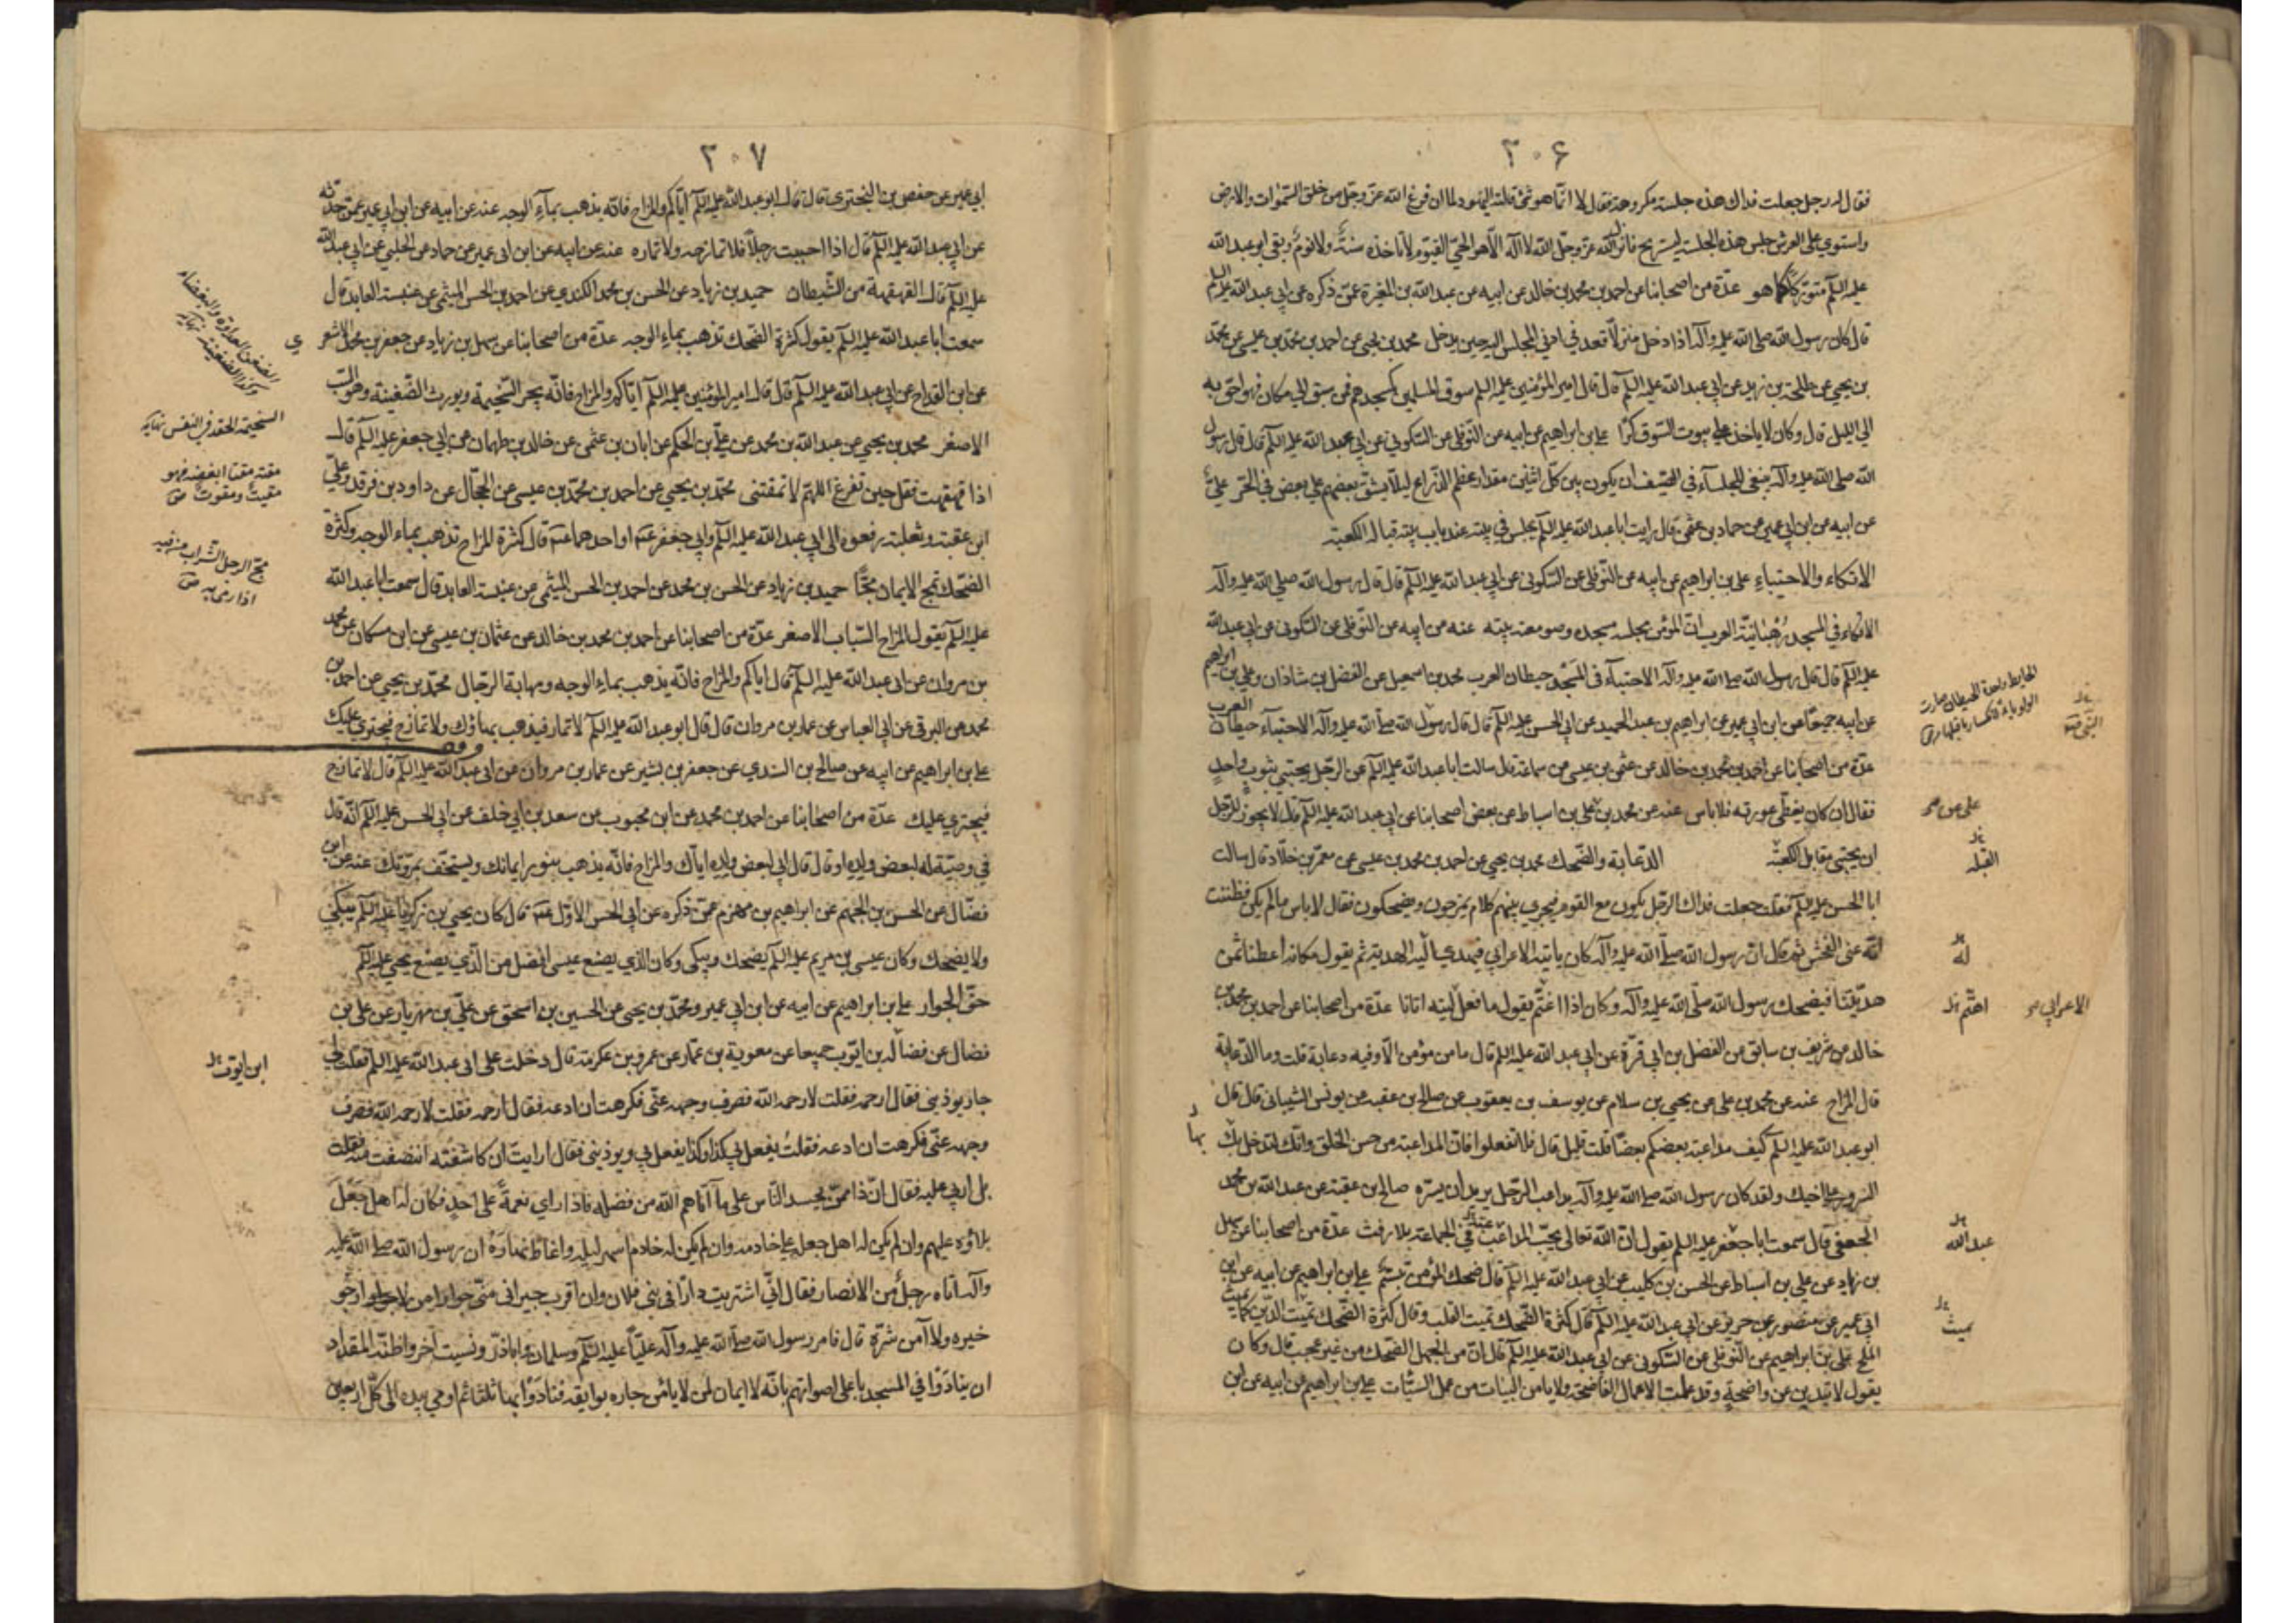 ٣٠۶
فقال له رجل جعلت فداك هذه جلسة مكروهة فقال لا انّما هو شئ قلته اليهود لما ان فرغ الله عزّ وجلّ من خلق السّموات والارض
واستوى على العرش جلس هذه الجلسة ليستريح فانزل الله عزّ وجلّ الله لا اله الّا هو الحيّ القيّوم لا تاخذه سنةٌ ولا نومٌ وبقى ابو عبد الله
عليه السلم متورّكًا كما هو عدّة من اصحابنا عن احمد بن محمد بن خالد عن ابيه عن عبد الله بن المغيرة عمّن ذكره عن ابي عبد الله عليه السلم
قال كان رسول الله صلى الله عليه وآله اذا دخل منزلًا قعد في ادنى المجلس اليه حين يدخل محمد بن يحيى عن احمد بن محمّد بن عيسى عن محمّد
بن يحيى عن طلحة بن زيد عن ابي عبد الله عليه السلم قال قال امير المؤمنين عليه السلم سوق المسلمين كمسجدهم فمن سبق الى مكان فهو احق به
الى الليل قال وكان لا ياخذ على بيوت السّوق كرًا علي بن ابراهيم عن ابيه عن النّوفلي عن السّكوني عن ابي عبد الله عليه السلم قال قال رسول
الله صلى الله عليه وآله ينبغي للجلسآء في الصّيف ان يكون بين كلّ اثنين مقدار عظم الذّراع ليلّا يشقّ بعضهم على بعض في الحرّ عليّ
عن ابيه عن ابن ابي عمير عن حماد بن عثمن قال رايت ابا عبد الله عليه السلم يجلس في بيته عند باب بيته قبالة الكعبة
الاتكاء والاحتباء علي بن ابراهيم عن ابيه عن النّوفلي عن السّكوني عن ابي عبد الله عليه السلم قال قال رسول الله صلى الله عليه وآله
الاتكاء في المسجد رُهْبانيّة العرب انّ المؤمن مجلسه مسجده وصومعته بيته عنه عن ابيه عن النّوفلي عن السّكوني عن ابي عبد الله
عليه السلم قال قال رسول الله صلى الله عليه وآله الاحتبآء في المَسْجد حيطان العرب محمد بن اسمعيل عن الفضل بن شاذان وعلي بن ابراهيم
عن ابيه جميعًا عن ابن ابي عمير عن ابراهيم بن عبد الحميد عن ابي الحسن عليه السلم قال قال رسول الله صلى الله عليه وآله الاحتبآء حيطان العرب
عدّة من اصحابنا عن احمد بن محمد بن خالد عن عثمن بن عيسى عن سماعة قال سالت ابا عبد الله عليه السلم عن الرّجل يحتبي بثوب واحدٍ
فقال ان كان يغطّي عورته فلا باس عنه عن محمد بن علي بن اسباط عن بعض اصحابنا عن ابي عبد الله عليه السلم قال لا يجوز للرّجل
ان يحتبي مقابل الكعبة الدّعابة والضّحك محمد بن يحيى عن احمد بن محمد بن عيسى عن معمّر بن خلّاد قال سالت
ابا الحسن عليه السلم فقلت جعلت فداك الرّجل يكون مع القوم فيجري بينهم كلام يمزحون ويضحكون فقال لا باس ما لم يكن فظننت
انّه عنى الفحش ثم قال انّ رسول الله صلّى الله عليه وآله كان ياتيه الاعرابي فيهدي اليه الهدية ثم يقول مكانه اعطنا ثمن
هديّتنا فيضحك رسول الله صلّى الله عليه وآله وكان اذا اغتمّ يقول ما فعل ليته اتانا عدّة من اصحابنا عن احمد بن محمد بن
خالد عن شريف بن سابق عن الفضل بن ابي قرّة عن ابي عبد الله عليه السلم قال ما من مؤمن الّا وفيه دعابة قلت وما الدّعابة
قال المزاح عنه عن محمد بن علي عن يحيى بن سلام عن يوسف بن يعقوب عن صالح بن عقبه عن يونس الشيباني قال قال
ابو عبد الله عليه السلم كيف مداعبة بعضكم بعضًا قلت قليل قال فلا تفعلوا فانّ المداعبة من حسن الخلق وانّك لتدخل بها
السّرور على اخيك ولقد كان رسول الله صلى الله عليه وآله يداعب الرّجل يريد ان يسرّه صالح بن عقبة عن عبد الله بن محمد
الجعفي قال سمعت ابا جعفر عليه السلم يقول انّ الله تعالى يحبّ المداعب في الجماعة بلا رفث عدّة من اصحابنا عن سهل
بن زياد عن علي بن اسباط عن الحسن بن كليب عن ابي عبد الله عليه السلم قال ضحك المؤمن تبسّم علي بن ابراهيم عن ابيه عن ابن
ابي عمير عن منصور عن حريز عن ابي عبد الله عليه السلم قال كثرة الضّحك تميت القلب وقال كثرة الضّحك تميث الدّين كما يميث
الملح علي بن ابراهيم عن النّوفلي عن السّكوني عن ابي عبد الله عليه السلم قال انّ من الجهل الضّحك من غير عجب قال وكان
يقول لا تبدين عن واضحةٍ وقد عملت الاعمال الفاضحة ولا يامن البيات من عمل السيّئات علي بن ابراهيم عن ابيه عن ابن
على عن
القبله
له
اهتم
الاعرابي
عبد الله
يميث
٣٠٧
ابي عمير عن حفص بن البختري قال قال ابو عبد الله عليه السلم ايّاكم والمزاح فانّه يذهب بمآء الوجه عنه عن ابيه عن ابن ابي عمير عمّن حدّثه
عن ابي عبد الله عليه السلم قال اذا احببت رجلًا فلا تمازحه ولا تماره عنه عن ابيه عن ابن ابي عمير عن حماد عن الحلبي عن ابي عبد الله
عليه السلم قال القهقهة من الشّيطان حميد بن زياد عن الحسن بن محمد الكندي عن احمد بن الحسن الميثمي عن عنبسة العابد قال
سمعت ابا عبد الله عليه السلم يقول كثرة الضّحك تذهب بماء الوجه عدّة من اصحابنا عن سهل بن زياد عن جعفر بن محمد الاشعري
عن ابن القداح عن ابي عبد الله عليه السلم قال قال امير المؤمنين عليه السلم ايّاكم والمزاح فانّه يجر السّخيمة ويورث الضّغينة وهو السّب
الاصغر محمد بن يحيى عن عبد الله بن محمد عن عليّ بن الحكم عن ابان بن عثمن عن خالد بن طهمان عن ابي جعفر عليه السلم قال
اذا قهقهت فقل حين تفرغ اللهمّ لا تمقتني محمّد بن يحيى عن احمد بن محمّد بن عيسى عن الحجّال عن داود بن فرقد وعليّ
ابن عقبة وثعلبة رفعوه الى ابي عبد الله عليه السلم وابي جعفر او احدهما قال كثرة المزاح تذهب بماء الوجه وكثرة
الضّحك تمج الايمان مجًّا حميد بن زياد عن الحسن بن محمد عن احمد بن الحسن الميثمي عن عنبسة العابد قال سمعت ابا عبد الله
عليه السلم يقول المزاح السّباب الاصغر عدّة من اصحابنا عن احمد بن محمد بن خالد عن عثمان بن عيسى عن ابن مسكان عن محمد
بن مروان عن ابي عبد الله عليه السلم قال اياكم والمزاح فانّه يذهب بماء الوجه ومهابة الرّجال محمّد بن يحيى عن احمد بن
محمد عن البرقي عن ابي العباس عن عمار بن مروان قال قال ابو عبد الله عليه السلم لا تمار فيذهب بهاؤك ولا تمازح فيجترى عليك
علي بن ابراهيم عن ابيه عن صالح بن السّندي عن جعفر بن بشير عن عمار بن مروان عن ابي عبد الله عليه السلم قال لا تمازح
فيجترى عليك عدّة من اصحابنا عن احمد بن محمد عن ابن محبوب عن سعد بن ابي خلف عن ابي الحسن عليه السلم انّه قال
في وصيّة له لبعض ولده او قال قال ابي لبعض ولده ايّاك والمزاح فانّه يذهب بنور ايمانك ويستخّف بمروّتك عنه عن ابن
فضّال عن الحسن بن الجهم عن ابراهيم بن مهزم عمّن ذكره عن ابي الحسن الاوّل قال كان يحيى بن زكريّا عليه السلم يبكي
ولا يضحك وكان عيسى بن مريم عليه السلم يضحك ويبكى وكان الذي يصنع عيسى افضل من الّذي يصنع يحيى عليه السلم
حقّ الجوار علي بن ابراهيم عن ابيه عن ابن ابي عمير ومحمّد بن يحيى عن الحسين بن اسحق عن عليّ بن مهزيار عن علي بن
فضال عن فضالة بن ايّوب جميعا عن معوية بن عمّار عن عمرو بن عكرمة قال دخلت على ابي عبد الله عليه السلم فقلت لي
جار يوذيني فقال ارحمه فقلت لا رحمه الله فصرف وجهه عنّي فكرهت ان ادعه فقال ارحمه فقلت لا رحمه الله فصرف
وجهه عنّي فكرهت ان ادعه فقلت يفعل بي كذا وكذا يفعل بي ويوذيني فقال ارايت ان كاشفته انتصفت منه فقلت
بل اربي عليه فقال انّ ذا ممّن يحسد النّاس على ما آتاهم الله من فضله فاذا راى نعمةً على احدٍ فكان له اهل جَعَلَ
بلاؤه عليهم وان لم يكن له اهل جعل على خادمه وان لم يكن له خادم اسهر ليله واغاظ نهارَهُ ان رسول الله صلى الله عليه
وآله اتاه رجلٌ من الانصار فقال انّي اشتريت دارًا في بني فلان وان اقرب جيراني منّي جوارا من لا ارجو
خيره ولا آمن شرّه قال فامر رسول الله صلى الله عليه وآله عليّاً عليه السّلم وسلمان وابا ذرّ ونسيت آخر واظنّه المقداد
ان ينادَوْا في المسجد باعلى اصواتهم بانّه لا ايمان لمن لا يامن جاره بوايقه فنادَوْا بها ثلثا ثم اومى بيده الى كلّ اربعين
الضغن العداوة والبغضاء
وكذا الضغينة نهايه
السخيمة الحقد في النفس نهايه
مقته مقتا ابغضه فهو
مقيت وممقوت ص
مجّ الرجل الشّراب من فيه
اذا رمى به ص
ابن ايّوب